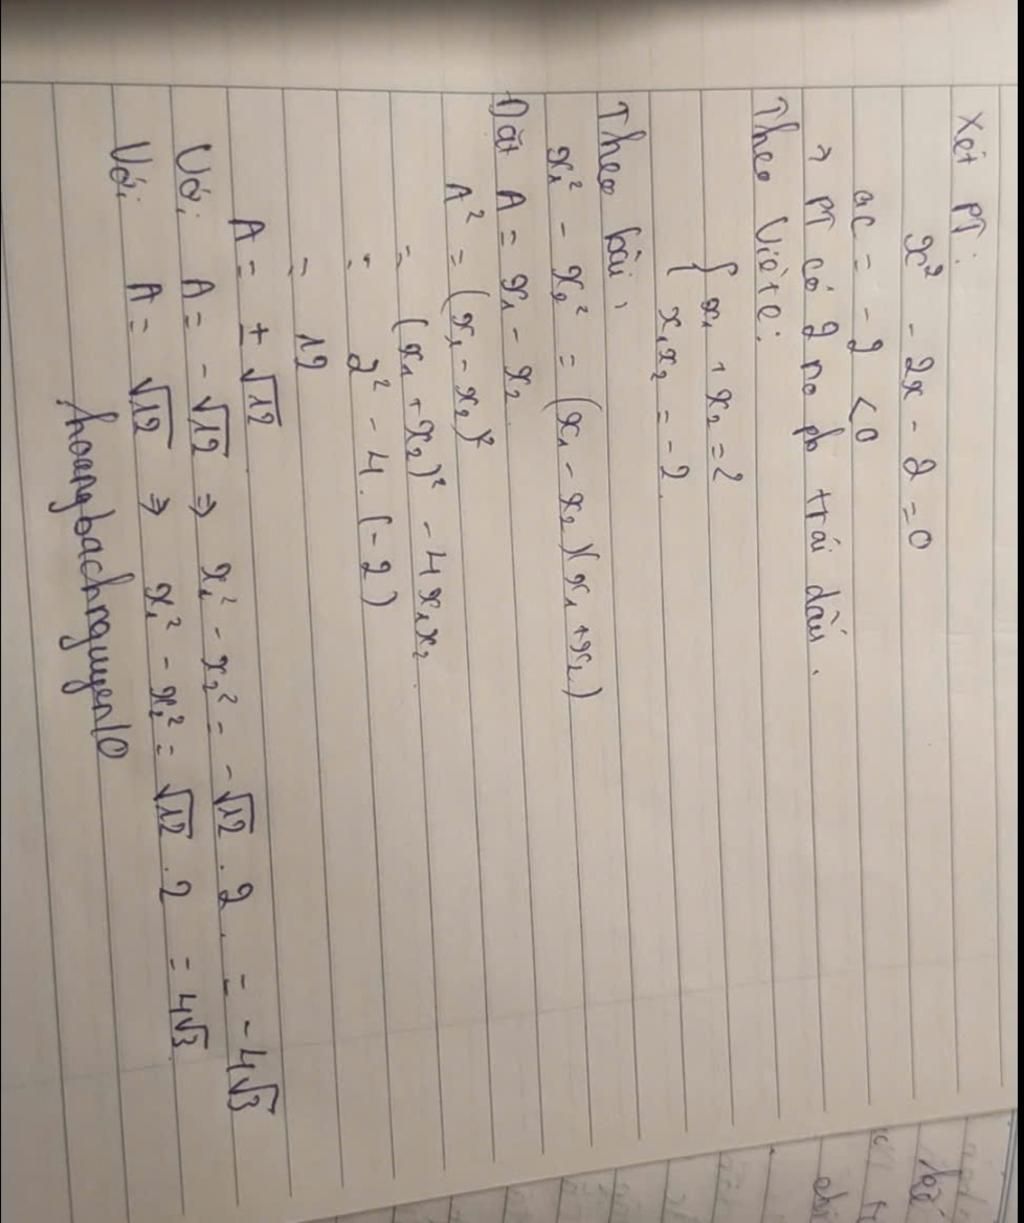 Xét PT:
x² - 2x - 2 = 0
ac = - 2 < 0
→ PT có 2 no pb trái dấu.
Theo Viète:
{ x₁ + x₂ = 2
x₁x₂ = - 2
Theo bài,
x₁² - x₂² = (x₁ - x₂)(x₁ + x₂)
Đặt A = x₁ - x₂
A² = (x₁ - x₂)²
= (x₁ + x₂)² - 4x₁x₂
= 2² - 4.(-2)
= 12
A = ± √12
Với A = - √12 ⇒ x₁² - x₂² = - √12 . 2 = - 4√3
Với A = √12 ⇒ x₁² - x₂² = √12 . 2 = 4√3
hoangbachnguyen10